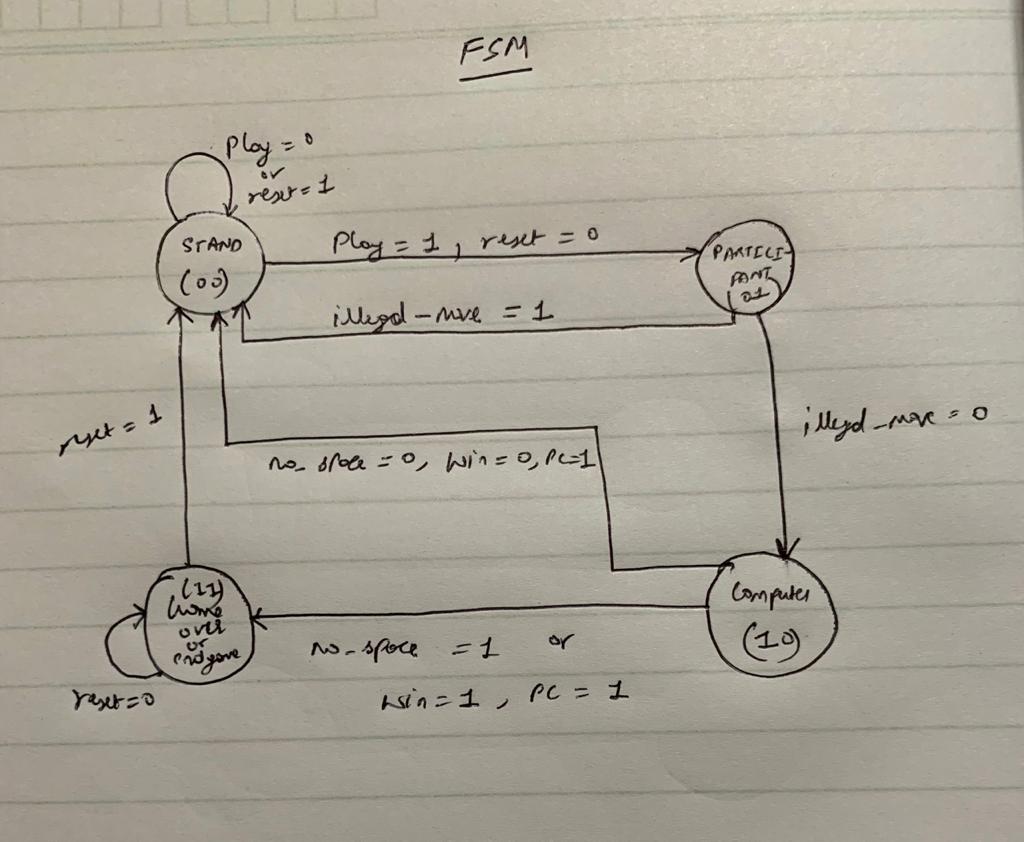 FSM
Play = 0
or
reset = 1
STAND
(00)
Play = 1, reset = 0
PARTICI-
PANT
01
illegal-move = 1
reset = 1
illegal-move = 0
no-space = 0, Win = 0, PC=1
(11)
Game
over
or
endgame
reset=0
Computer
(10)
no-space = 1 or
win = 1, PC = 1